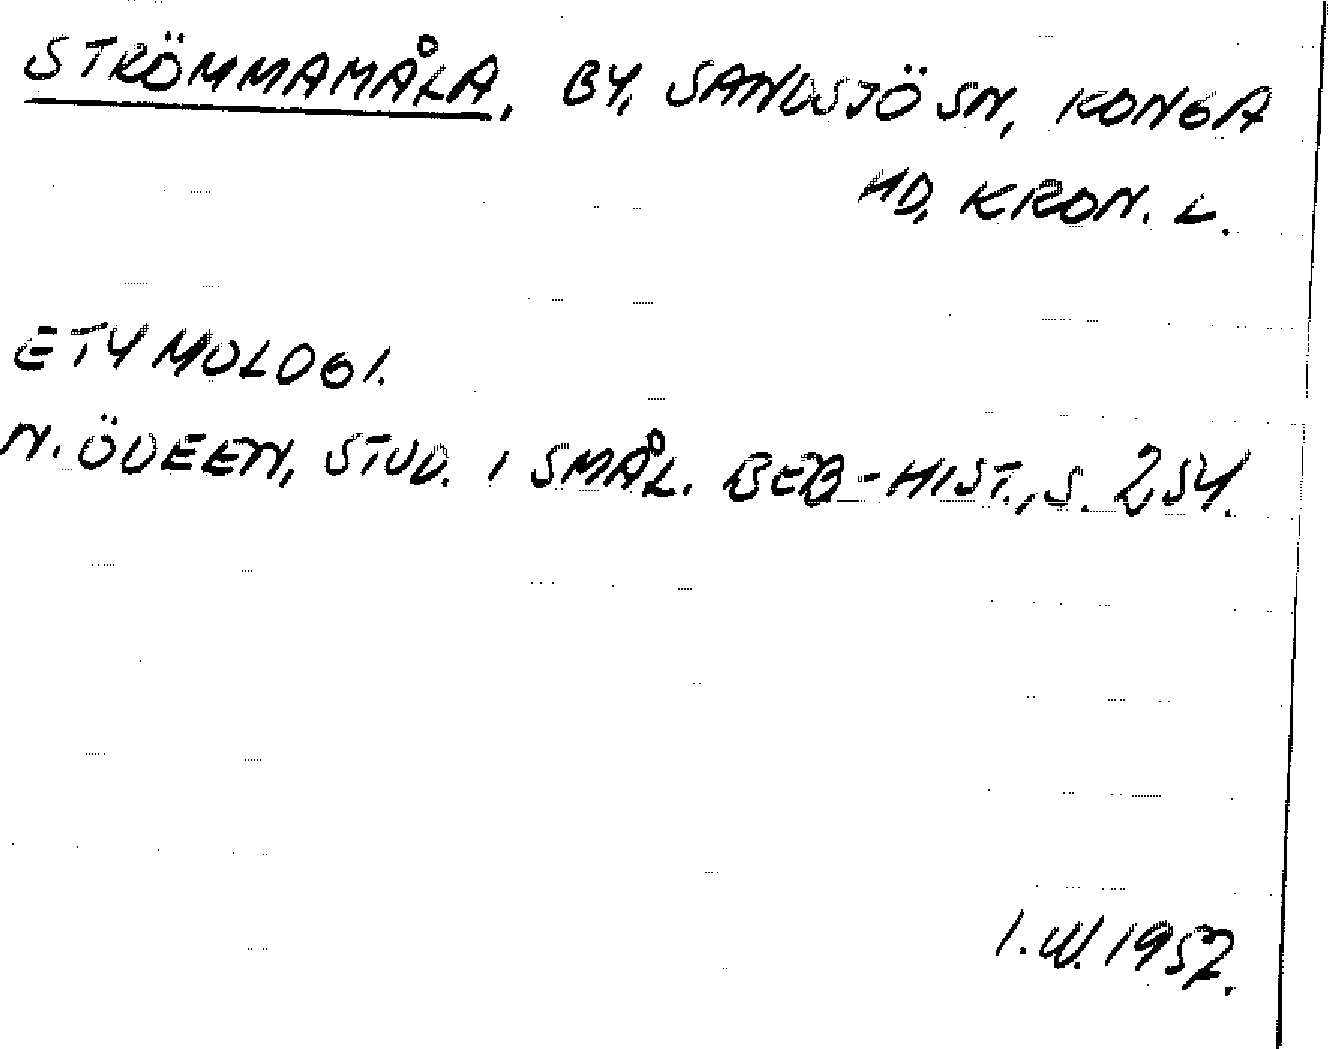 STRÖMMAMÅLA, BY, SANDSJÖ SN, KONGA
HD, KRON. L.
ETYMOLOGI.
N. ÖDEEN, STUD. I SMÅL. BEB-HIST., S. 254.
I. W. 1957.